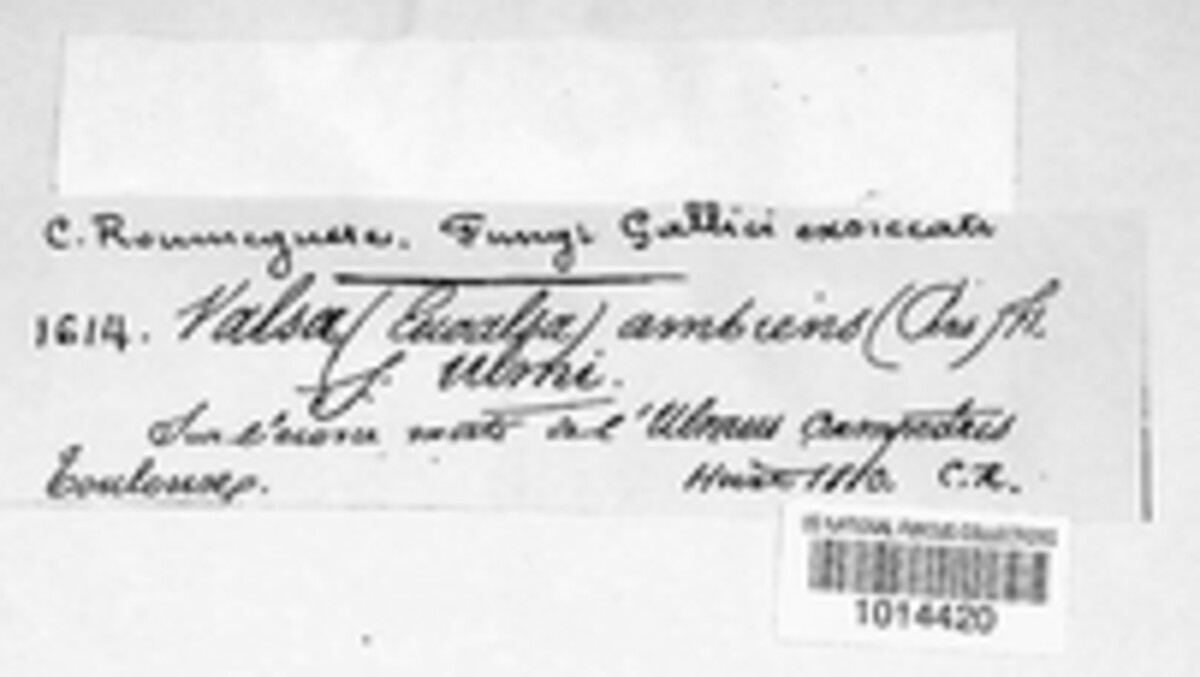 C. Roumeguere. Fungi Gallici exsiccati
1614. Valsa (Euvalsa) ambiens (Pers) Fr.
f. Ulmi.
Sur l'ecorce morte de l'Ulmus campestris
Toulouse. 1880. C.R.
US NATIONAL FUNGUS COLLECTIONS
1014420